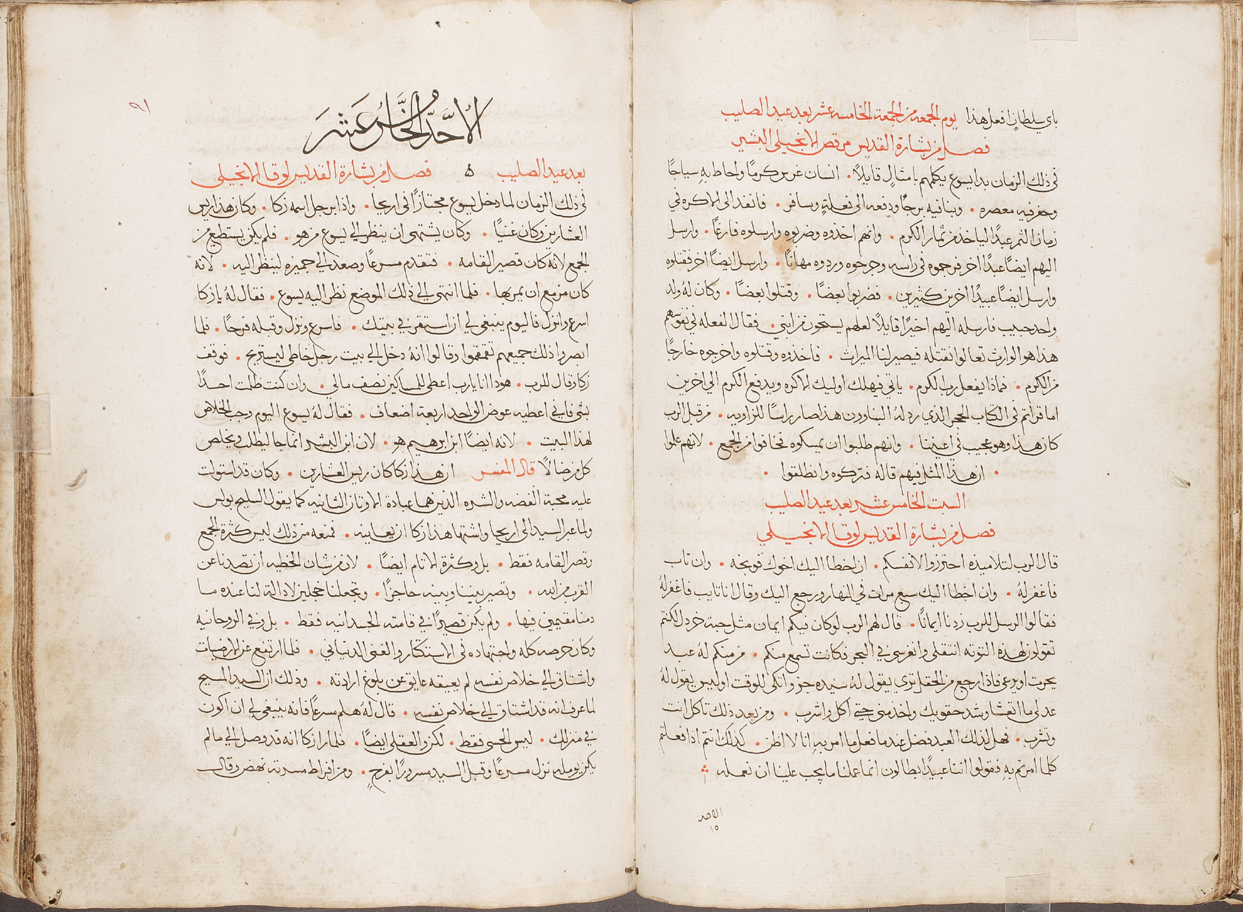 باي سلطان افعل هذا يوم الجمعة من الجمعة الخامسة عشر بعد عيد الصليب
فصل من بشارة القديس مرقص الانجيلي البشير
في ذلك الزمان بدا يسوع يكلمهم بامثال قايلاً • انسان غرس كرمًا واحاط به سياجًا
وحفر فيه معصره • وبنا فيه برجًا ودفعه الى فعلةٍ وسافر • فانفد الى الاكره في
زمان الثمر عبدًا لياخذ من ثمار الكرم • وانهم اخذوه وضربوه وارسلوه فارغًا • وارسل
اليهم ايضًا عبدًا اخر فرجموه في راسه وجرحوه وردوه مهانًا • وارسل ايضًا اخر فقتلوه
وارسل ايضًا عبيدًا اخرين كثيرين • فضربوا بعضًا • وقتلوا بعضًا • وكان له ولد
واحد حبيب فارسله اليهم اخيرًا قايلاً لعلهم يستحون من ابني • فقال الفعله في نفوسهم
هذا هو الوارث تعالوا نقتله فيصير لنا الميراث • فاخذوه وقتلوه واخرجوه خارجًا
من الكرم • فماذا يفعل رب الكرم • ياتي فيهلك اوليك الاكره ويدفع الكرم الى اخرين
اما قراتم في الكتاب الحجر الذي رذله البناوون هذا صار راسًا للزاويه • من قبل الرب
كان هذا وهو عجيب في اعيننا • وانهم طلبوا ان يمسكوه فخافوا من الجمع • لانهم علموا
• ان هذا المثل فيهم قاله فتركوه وانطلقوا •
السبت الخامس عشر بعد عيد الصليب
فصل من بشارة القديس لوقا الانجيلي
قال الرب لتلاميذه احترزوا لانفسكم • ان اخطا اليك اخوك فوبخه • وان تاب
فاغفر له • وان اخطا اليك سبع مرات في النهار ورجع اليك وقال انا تايب فاغفر له
فقالوا الرسل للرب زدنا ايمانًا • قال لهم الرب لو كان فيكم ايمان مثل حبة خردل لكنتم
تقولون لهذه التوته انتقلي وانغرسي في البحر فكانت تسمع منكم • من منكم له عبد
يحرث او يرعى فاذا رجع من الحقل ترى يقول له سيده جز واتكي للوقت اوليس يقول له
عد لي ما اتعشا وشد حقويك واخدمني حتى اكل واشرب • ومن بعد ذلك تاكل انت
وتشرب • فهل لذلك العبد فضل عندما فعل ما امر به انا لا اظن • كذلك انتم اذا فعلتم
كلما امرتم به فقولوا اننا عبيدًا بطالون انما عملنا ما يجب علينا ان نعمله
الاحد
١٥
٩١
الأحَّد الخامس عَشَر
بعد عيد الصليب ۵ فصل من بشارة القديس لوقا الانجيلي
في ذلك الزمان لما دخل يسوع مجتازًا في اريحا • واذا برجل اسمه زكا • وكان هذا ريس
العشارين وكان غنيًا • وكان يشتهي ان ينظر الى يسوع من هو • فلم يكن يستطع من
الجمع لانه كان قصير القامه • فتقدم مسرعًا وصعد الى جميزه لينظر اليه • لانه
كان مزمع ان يمر بها • فلما انتهى الى ذلك الموضع نظر اليه يسوع • فقال له يا زكا
اسرع وانزل فاليوم ينبغي لي ان استقر في بيتك • فاسرع ونزل وقبله فرحًا • فلما
ابصروا ذلك جميعهم تقمقموا وقالوا انه دخل الى بيت رجل خاطي ليستريح • فوقف
زكا وقال للرب • هوذا انا يارب اعطي للمساكين نصف مالي • وان كنت ظلمت احدًا
بشي فاني اعطيه عوض الواحد اربعة اضعاف • فقال له يسوع اليوم وجب الخلاص
لهذا البيت • لانه ايضًا ابن ابرهيم هو • لان ابن البشر انما جا ليطلب ويخلص
كل من ضالاً قال المفسر ان هذا زكا كان ريس العشارين • وكان قد استولت
عليه محبة الفضه والشره الذين هما عبادة الاوثان الثانيه كما يقول السليح بولس
ولما عبر السيد الى اريحا واشتها هذا زكا ان يعاينه • فمنعه من ذلك ليس كثرة الجمع
وقصر القامه فقط • بل وكثرة الاثام ايضًا • لان من شان الخطيه ان تصدنا عن
القرب من الله • وتصير بيننا وبينه حاجزًا • وتجعلنا خجلين لا دالة لنا عنده ما
دمنا مقيمين فيها • ولم يكن قصيرًا في قامته الجسدانيه فقط • بل وفي الروحانيه
وكان حرصه كله واجتهاده في الاستكثار والغنى الدنياني • فلما ارتفع عن الارضيات
واشتاق الى خلاص نفسه لم يعيقه عايق عن بلوغ ارادته • وذلك ان السيد المسيح
لما عرف انه قد اشتاق الى خلاص نفسه • قال له هلم مسرعًا فانه ينبغي لي ان اكون
في منزلك • ليس الحسي فقط • لكن والعقلي ايضًا • فلما راا زكا انه قد وصل الى ما لم
يكن يومله نزل مسرعًا وقبل السيد مسرورًا بفرحٍ • ومن افراط مسرته نهض وقال